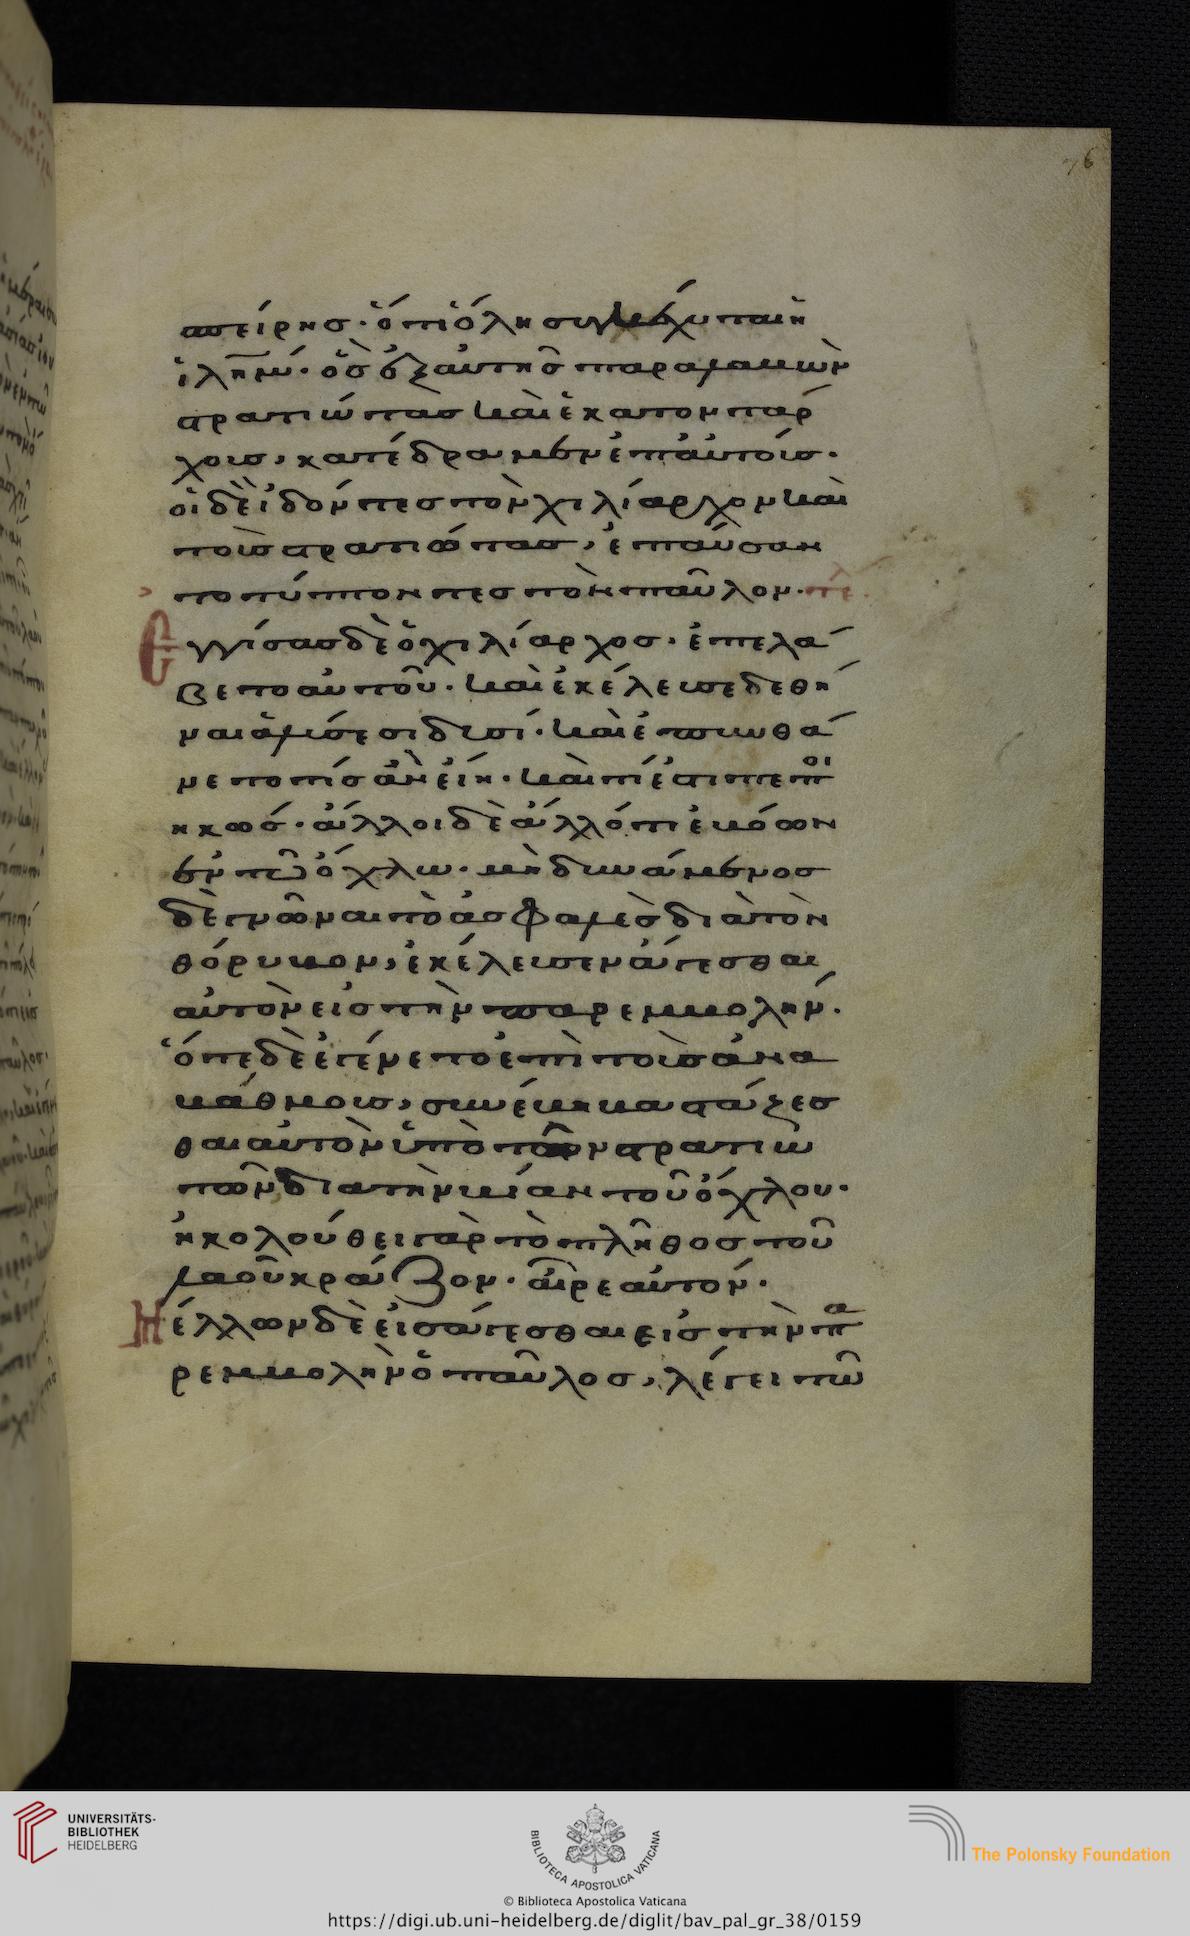 76
σπείρης· ὅτι ὅλη συγκέχυται ἡ
ἱλ̅η̅μ̅· ὃς ἐξαυτῆς παραλαβὼν
στρατιώτας καὶ ἑκατοντάρ
χους, κατέδραμεν ἐπ' αὐτούς·
οἱ δὲ ἰδόντες τὸν χιλίαρχον καὶ
τοὺς στρατιώτας, ἐπαύσαν
το τύπτοντες τὸν παῦλον· τε
Ἐγγίσας δὲ ὁ χιλίαρχος· ἐπελά
βετο αὐτοῦ· καὶ ἐκέλευσε δεθῆ
ναι ἁλύσεσι δυσί· καὶ ἐπυνθά
νετο τίς ἂν εἴη· καὶ τί ἐστι πεποι
ηκώς· ἄλλοι δὲ ἄλλό τι ἐβόων
ἐν τῶ ὄχλω· μὴ δυνάμενος
δὲ γνῶναι τὸ ἀσφαλὲς διὰ τὸν
θόρυβον, ἐκέλευσεν ἄγεσθαι
αὐτὸν εἰς τὴν παρεμβολήν·
ὅτε δὲ ἐγένετο ἐπὶ τοὺς ἀνα
βάθμους, συνέβη βαστάζεσ
θαι αὐτὸν ὑπὸ τῶν στρατιω
τῶν διὰ τὴν βίαν τοῦ ὄχλου·
ἠκολούθει γὰρ τὸ πλῆθος τοῦ
λαοῦ κράζον· αἶρε αὐτόν·
Μέλλων δὲ εἰσάγεσθαι εἰς τὴν πα
ρεμβολὴν ὁ παῦλος, λέγει τῶ
UNIVERSITÄTS-
BIBLIOTHEK
HEIDELBERG
BIBLIOTECA APOSTOLICA VATICANA
The Polonsky Foundation
© Biblioteca Apostolica Vaticana
https://digi.ub.uni-heidelberg.de/diglit/bav_pal_gr_38/0159